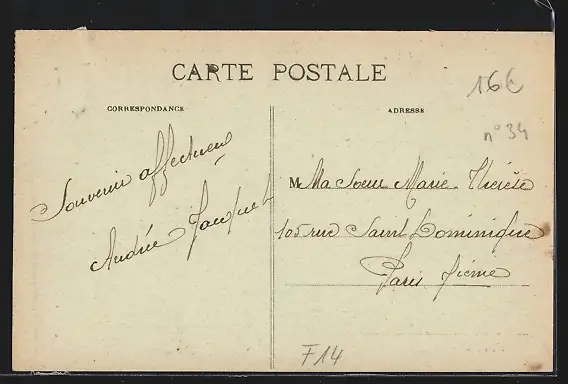 CARTE POSTALE
CORRESPONDANCE
ADRESSE
16€
n° 34
Souvenir affectueux
Andrée Jacquet
M Ma Soeur Marie-Thérèse
105 rue Saint Dominique
Paris 7ième
F14